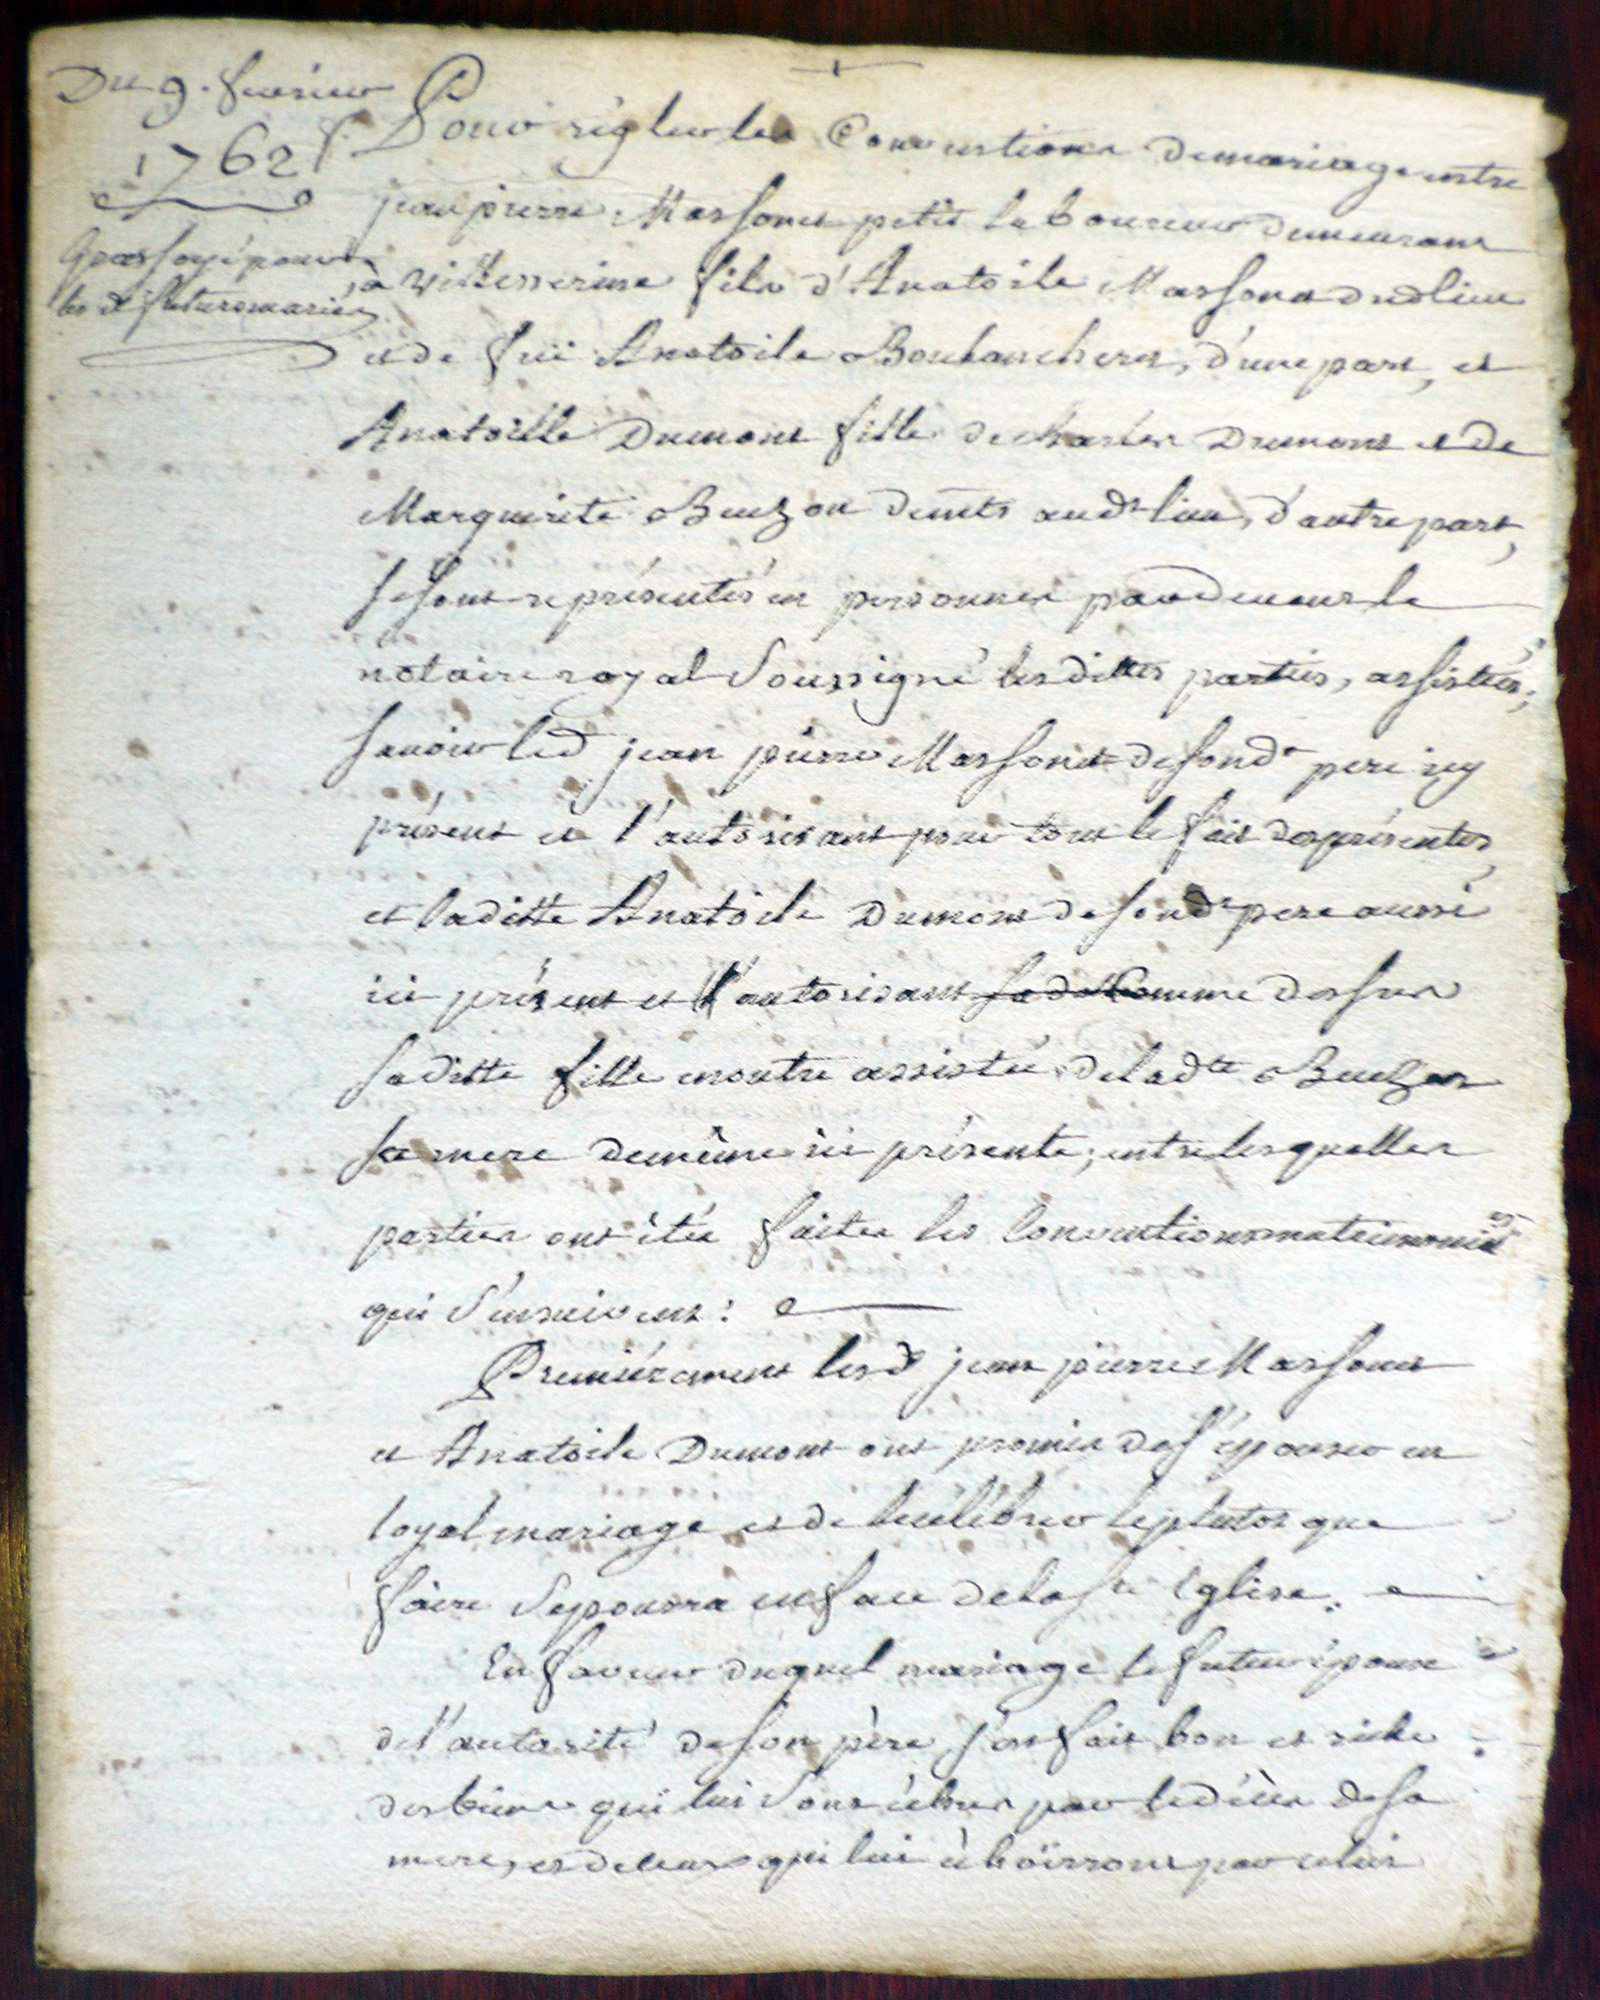 Du 9. fevrier
1762
Grossoyé pour
les d. futurs mariés
Pour régler les Conventions de mariage entre
jean pierre Massonet petit laboureur demeurant
à Villesserine fils d'Anatoile Massonet dud lieu
et de fuë Anatoile Bouhancheret, d'une part, et
Anatoille Dumont fille de charles Dumont et de
Marguerite Buchon demts aud.t lieu, d'autre part,
se sont représentés en personnes pardevant le
notaire royal Soussigné les dittes parties, assistées,
savoir led jean pierre Massonet de sond.t pere icy
présent et l'autorisant pour tout le fait des présentes,
et laditte Anatoile Dumont de sond.t pere aussi
ici présent et l'autorisant sad.te Comme dessus
saditte fille enoutre assistée de lad.te Buchon
sa mere demême ici présente; entre lesquelles
parties ont étée faites les Conventions matrimoniales
qui S'ensuivent:
Premiérement lesd. jean pierre Massonet
et Anatoile Dumont ont promis de s'épouser en
loyal mariage et de le célébrer le plutot que
faire Se poura en face de la s.te Eglise.
En faveur duquel mariage le futur époux
de l'autorité de son père s'est fait bon et riche
des biens qui lui Sont échus par le décès de sa
mere, et de ceux qui lui échoirront par celui